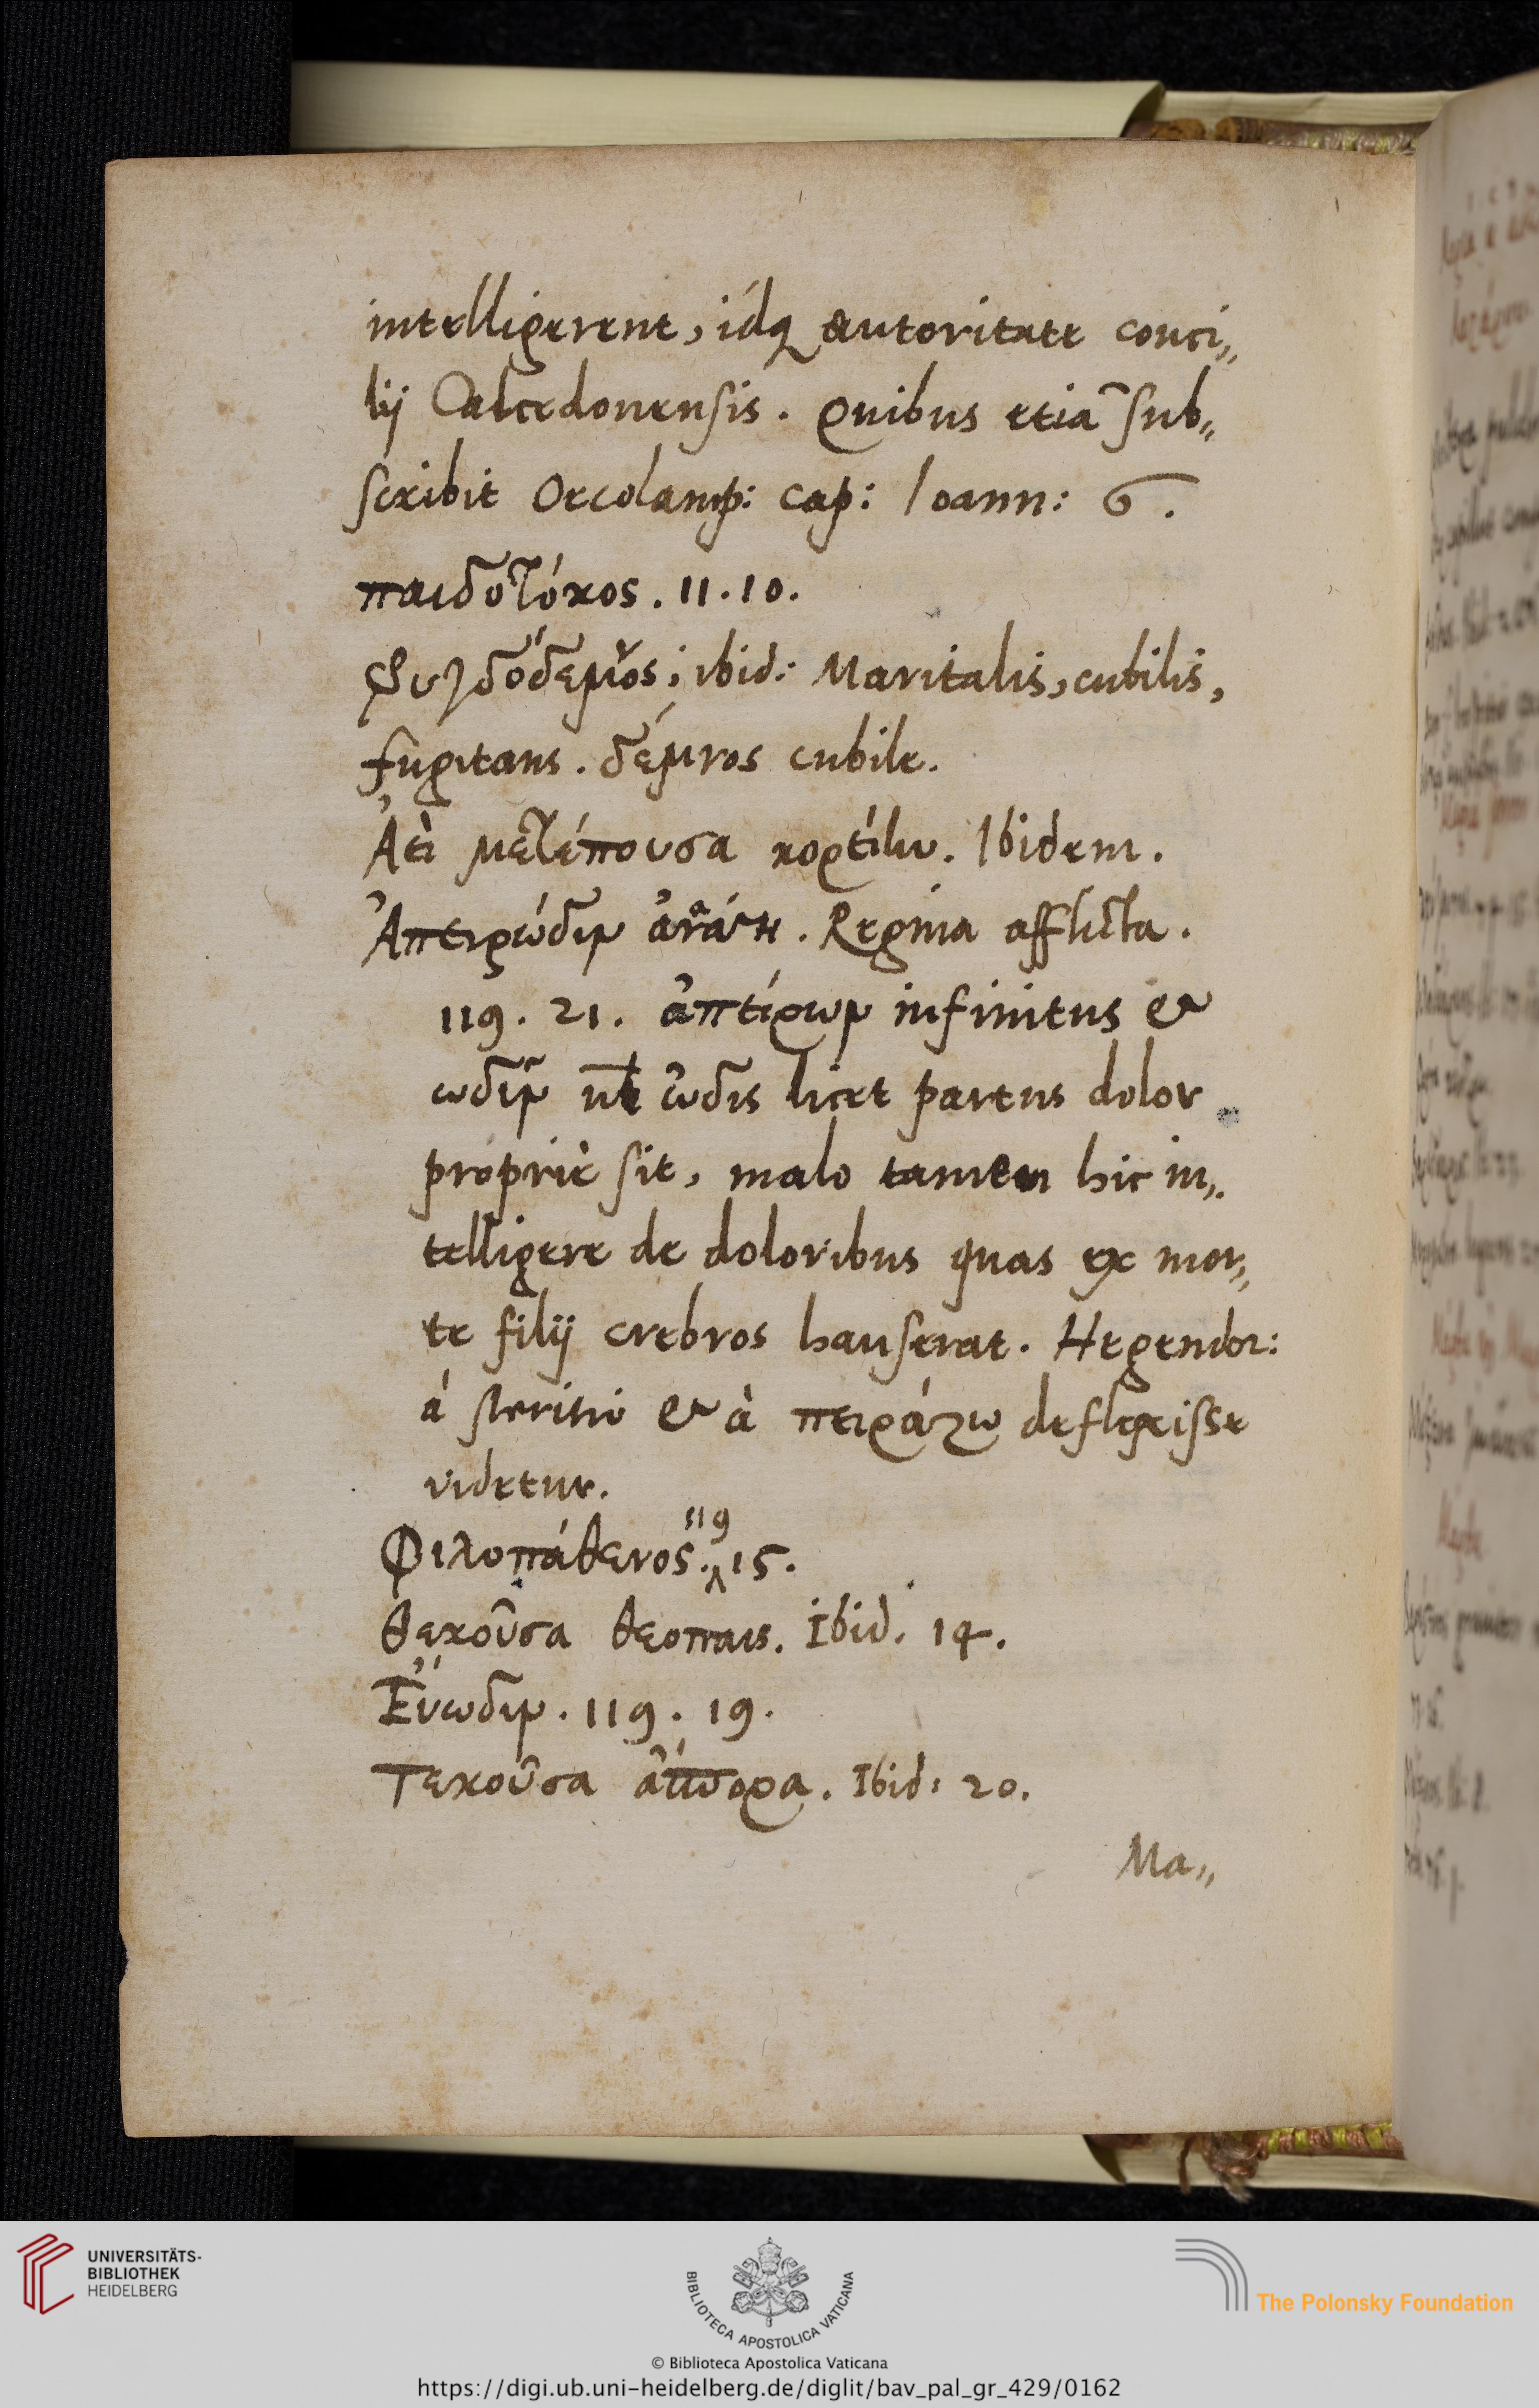 intelligerent, idq autoritate conci„
lij Calcedonensis. Quibus etiã sub„
scribit Oecolamp: cap: Ioann: 6.
παιδοτόκος. 11. 10.
ibid: Maritalis, cubilis,
fugitans. δέμνος cubile.
Ἀεὶ μετέπουσα Ibidem.
Ἀπειρώδιν Regina afflicta.
119. 21. infinitus &
ωδιν ὠδις licet partus dolor
propriè sit, malo tamen hic in„
telligere de doloribus quas ex mor„
te filij crebros hauserat. Hegendor:
& à πειράζω deflexisse
videtur.
Φιλοπάθενος. 119 15.
θεκοῦσα θεοπαις. Ibid. 14.
Εὔωδιν. 119. 19.
Τεκοῦσα ἄπορα. Ibid: 20.
Ma„
UNIVERSITÄTS-
BIBLIOTHEK
HEIDELBERG
BIBLIOTECA APOSTOLICA VATICANA
The Polonsky Foundation
© Biblioteca Apostolica Vaticana
https://digi.ub.uni-heidelberg.de/diglit/bav_pal_gr_429/0162